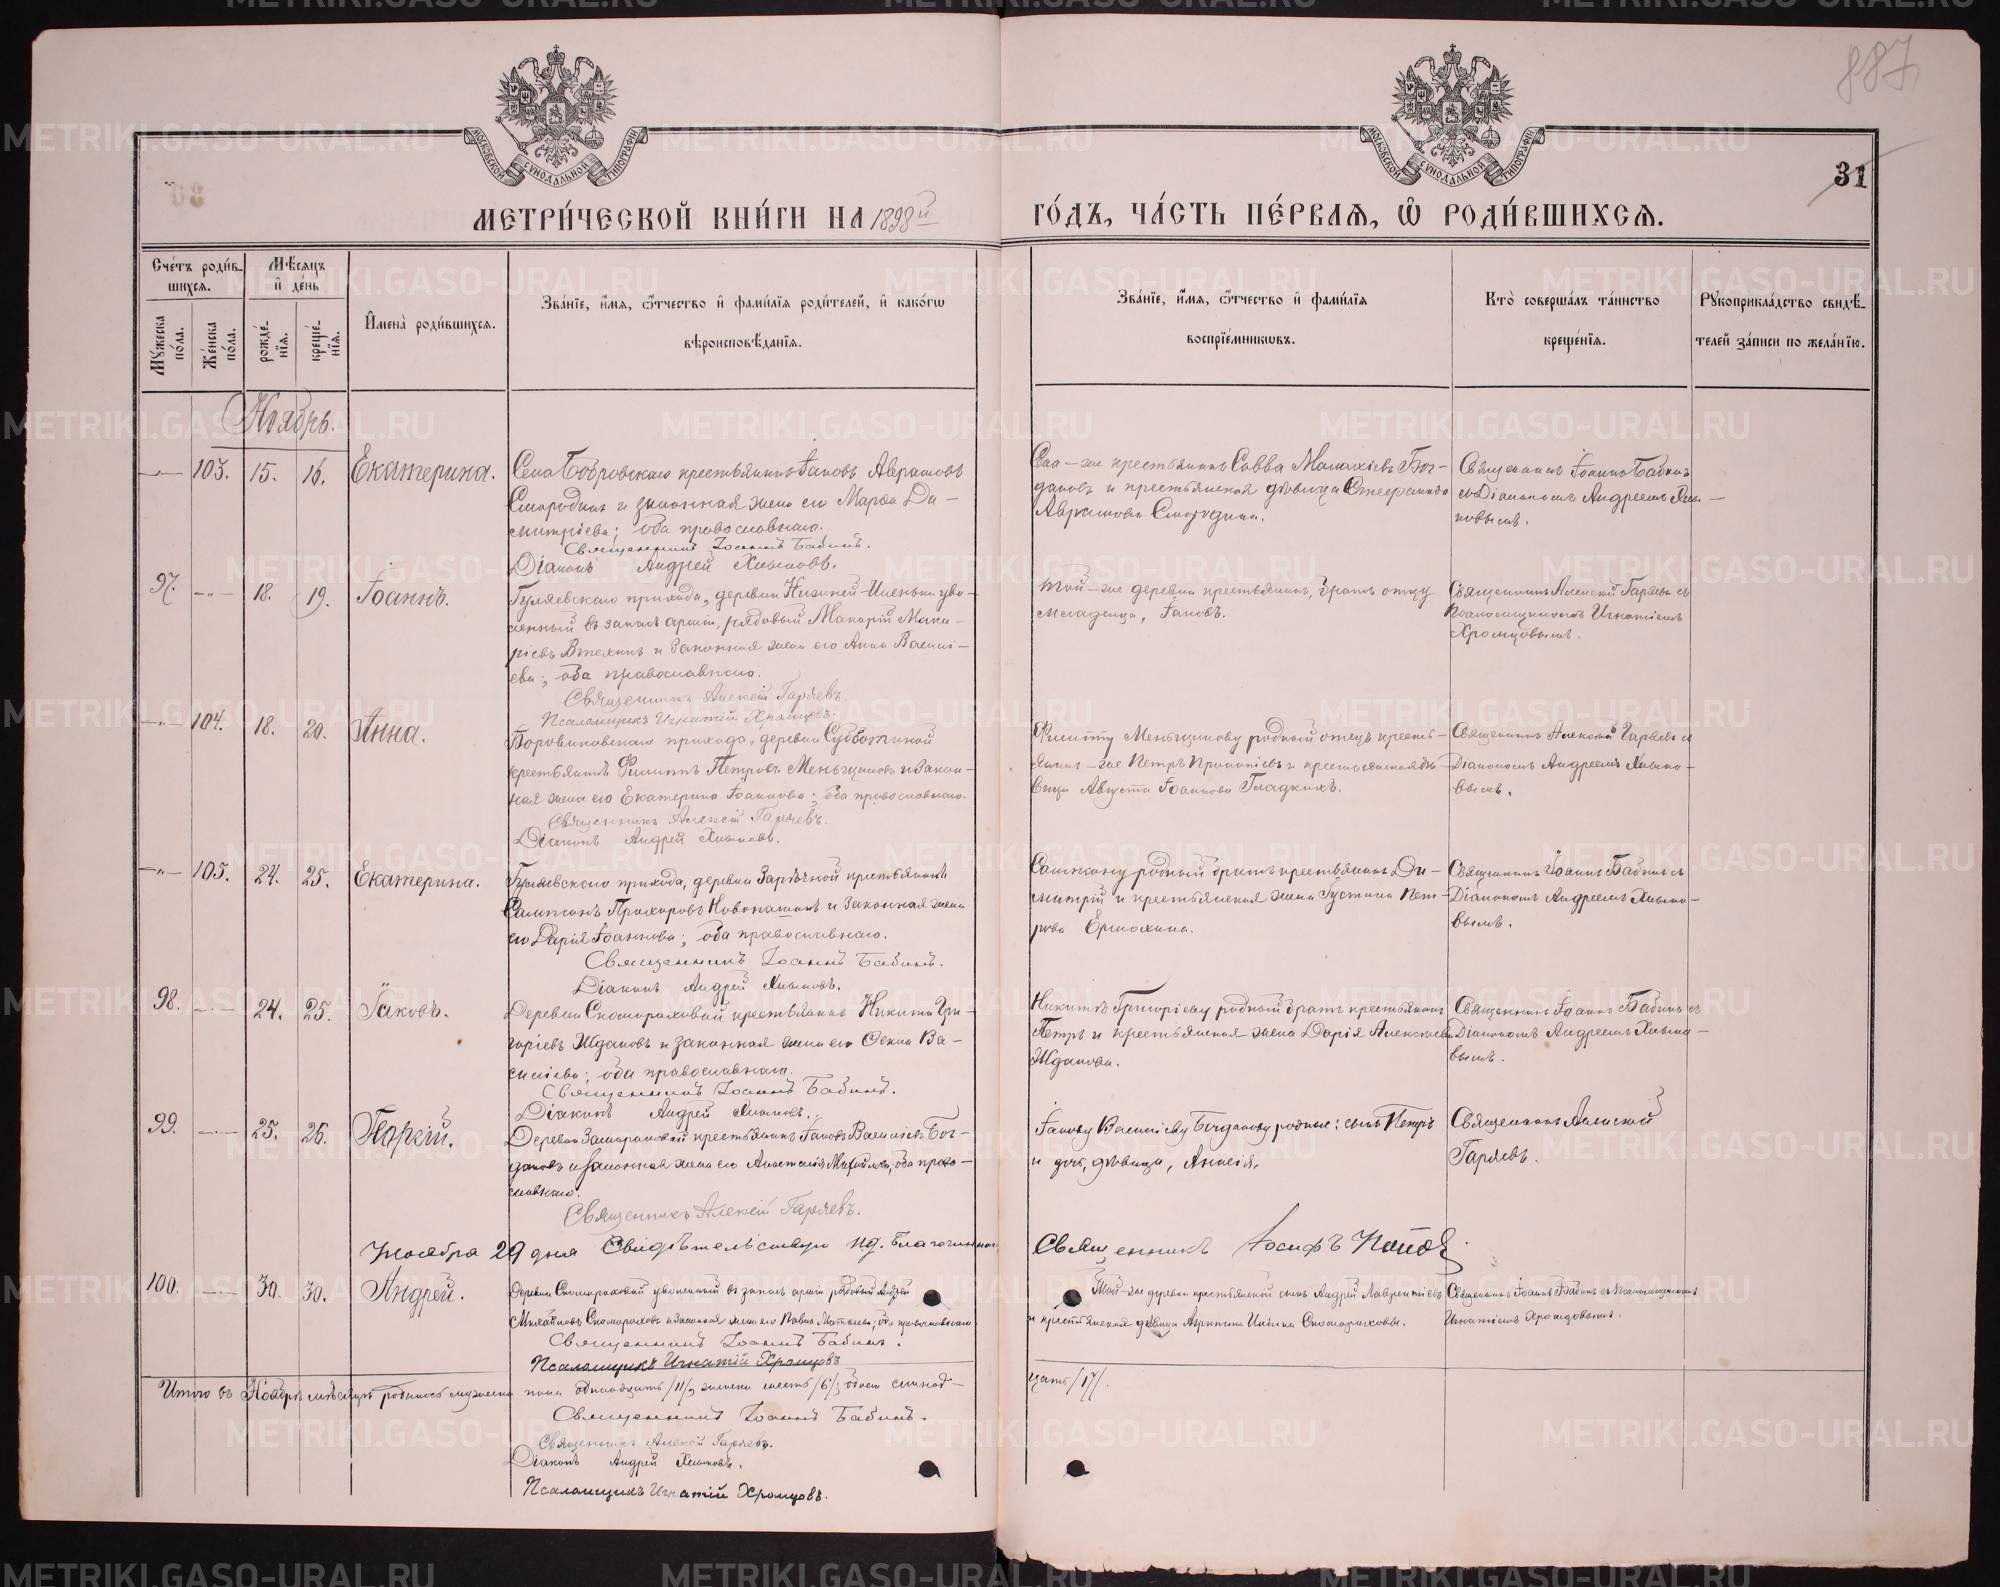 887
31
МОСКОВСКОЙ СѴНОДАЛЬНОЙ ТИПОГРАФІИ
МОСКОВСКОЙ СѴНОДАЛЬНОЙ ТИПОГРАФІИ
МЕТРИ́ЧЕСКОЙ КНИ́ГИ НА 1898й
ГО́ДЪ, ЧА́СТЬ ПЕ́РВАѦ, Ѿ РОДИ́ВШИХСѦ.
Сче́тъ роди́в-
шихсѧ.
Мꙋжеска по́ла.
Же́нска по́ла.
Мѣ́сѧцъ и де́нь
рожде́нїѧ.
креще́нїѧ.
Имена̀ роди́вшихсѧ.
Зва́нїе, и́мѧ, ѻ҆́тчество и фами́лїѧ роди́телей, и како́гѡ
вѣроисповѣ́данїѧ.
Зва́нїе, и́мѧ, ѻ҆́тчество и фами́лїѧ
воспрїе́мникѡвъ.
Кто̀ соверша́лъ та́инство
креще́нїѧ.
Рꙋкоприкла́дство свидѣ́-
телей за́писи по жела́нїю.
Ноябрь.
103. 15. 16. Екатерина.
Села Бобровскаго крестьянинъ Іаковъ Аврамовъ
Смородинъ и законная жена его Марѳа Ди-
митріева; оба православнаго.
Священникъ Іоаннъ Бабинъ.
Діаконъ Андрей Хлыновъ.
крестьянинъ Савва Малахіевъ Бог-
дановъ и крестьянская дѣвица Стефанида
Аврамова Смородина.
Священникъ Іоаннъ Бабинъ
съ Діакономъ Андреемъ Хлы-
новымъ.
97. 18. 19. Іоаннъ.
Гуляевскаго прихода, деревни Нижней уво-
ленный въ запасъ арміи, рядовый Макарій Мака-
ріевъ и законная жена его Анна Василі-
ева; оба православнаго.
Священникъ Алексій Гаряевъ
Псаломщикъ Игнатій Хромцовъ.
Той-же деревни крестьянинъ, братъ отцу
младенца, Іаковъ.
Священникъ Алексій Гаряевъ съ
Псаломщикомъ Игнатіемъ
Хромцовымъ.
104. 18. 20. Анна.
прихода, деревни Субботиной
крестьянинъ Филиппъ Петровъ Меньщиковъ и закон-
ная жена его Екатерина Іоаннова; оба православнаго.
Священникъ Алексій Гаряевъ.
Діаконъ Андрей Хлыновъ.
Филиппу Меньщикову родный отецъ кресть-
янинъ-же Петръ и крестьянская дѣ-
вица Августа Іоаннова Гладкихъ.
Священникъ Алексій Гаряевъ съ
Діакономъ Андреемъ Хлыно-
вымъ.
105. 24. 25. Екатерина.
Гуляевскаго прихода, деревни Зарѣчной крестьянинъ
Сампсонъ Прохоровъ Новопашинъ и законная жена
его Дарія Іоаннова; оба православнаго.
Священникъ Іоаннъ Бабинъ.
Діаконъ Андрей Хлыновъ.
Сампсону родный братъ крестьянинъ Ди-
митрій и крестьянская жена Густина Пет-
рова Ермохина.
Священникъ Іоаннъ Бабинъ съ
Діакономъ Андреемъ Хлыно-
вымъ.
98. 24. 25. Іаковъ.
Деревни Скомороховой крестьянинъ Никита Гри-
горіевъ Ждановъ и законная жена его Ва-
силіева; оба православнаго.
Священникъ Іоаннъ Бабинъ.
Діаконъ Андрей Хлыновъ.
Никитѣ Григоріеву родный братъ крестьянинъ
Петръ и крестьянская жена Дарія Алексіева
Жданова.
Священникъ Іоаннъ Бабинъ съ
Діакономъ Андреемъ Хлыно-
вымъ.
99. 25. 26. Паркій.
Деревни крестьянинъ Іаковъ Василіевъ Бог-
дановъ и законная жена его Анастасія Михайлова, оба право-
славнаго.
Священникъ Алексій Гаряевъ.
Іакову Василіеву Богданову родные: сынъ Петръ
и дочь, дѣвица, Анисія.
Священникъ Алексій
Гаряевъ.
Ноября 29 дня Свидѣтельствую Благочиннаго
Священникъ Іосифъ Поповъ
100. 30. 30. Андрей.
Деревни Скомороховой уволенный въ запасъ арміи рядовый Андрей
Михайловъ Скомороховъ и законная жена его оба православнаго.
Священникъ Іоаннъ Бабинъ.
Псаломщикъ Игнатій Хромцовъ
Той-же деревни крестьянской сынъ Андрей Лаврентіевъ
и крестьянская дѣвица Агрипина Скоморохова.
Священникъ Іоаннъ Бабинъ съ Псаломщикомъ
Игнатіемъ Хромцовымъ.
Итого въ Ноябрѣ мѣсяцѣ родилось мужеска пола одиннадцать /11/, женска шесть /6/; обоего семнад-
цать /17/.
Священникъ Іоаннъ Бабинъ.
Священникъ Алексій Гаряевъ.
Діаконъ Андрей Хлыновъ.
Псаломщикъ Игнатій Хромцовъ.
METRIKI.GASO-URAL.RU